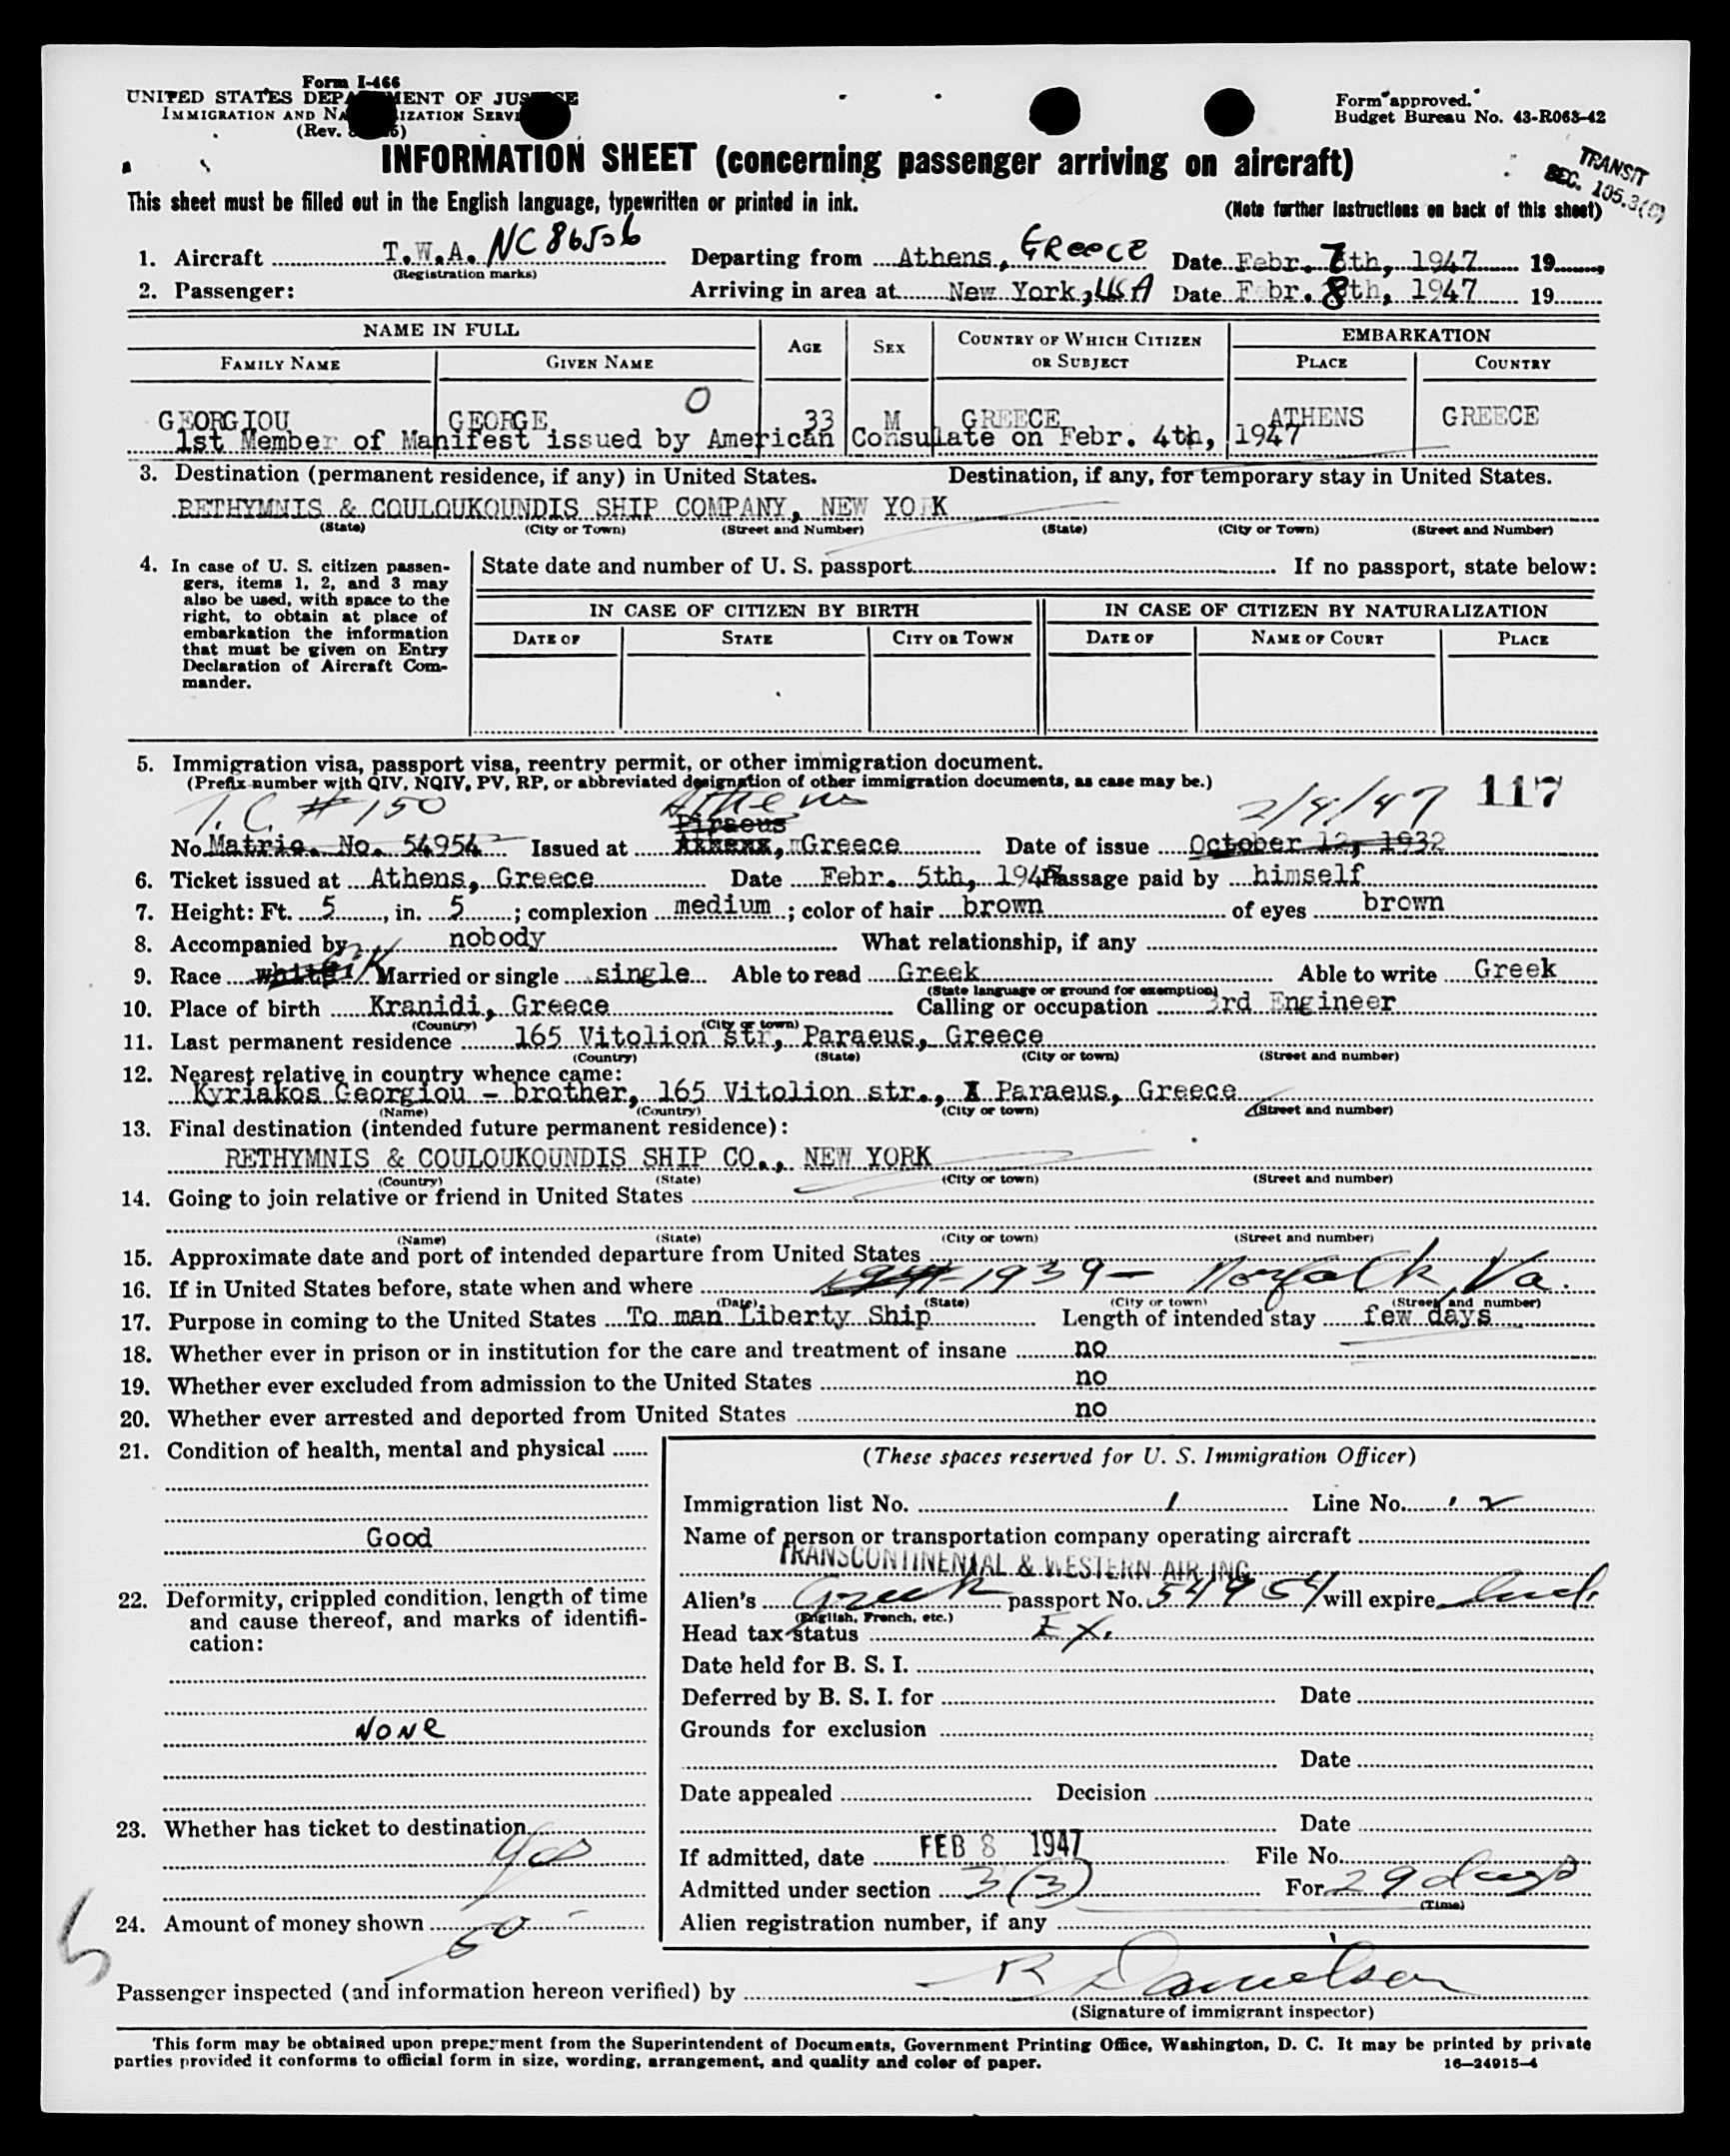 Form I-466
UNITED STATES DEPARTMENT OF JUSTICE
IMMIGRATION AND NATURALIZATION SERVICE
(Rev.
Form approved.
Budget Bureau No. 43-R063-42
INFORMATION SHEET (concerning passenger arriving on aircraft)
TRANSIT
SEC. 105.3(
This sheet must be filled out in the English language, typewritten or printed in ink.
(Note further instructions on back of this sheet)
1. Aircraft T.W.A. NC 86506 Departing from Athens, GReece Date Febr. 7th, 1947 19
(Registration marks)
2. Passenger: Arriving in area at New York, USA Date Febr. 8th, 1947 19
NAME IN FULL AGE SEX COUNTRY OF WHICH CITIZEN OR SUBJECT EMBARKATION
FAMILY NAME GIVEN NAME PLACE COUNTRY
O
GEORGIOU GEORGE 33 M GREECE ATHENS GREECE
1st Member of Manifest issued by American Consulate on Febr. 4th, 1947
3. Destination (permanent residence, if any) in United States. Destination, if any, for temporary stay in United States.
RETHYMNIS & COULOUKOUNDIS SHIP COMPANY, NEW YORK
(State) (City or Town) (Street and Number) (State) (City or Town) (Street and Number)
4. In case of U. S. citizen passengers, items 1, 2, and 3 may also be used, with space to the right, to obtain at place of embarkation the information that must be given on Entry Declaration of Aircraft Commander.
State date and number of U. S. passport If no passport, state below:
IN CASE OF CITIZEN BY BIRTH IN CASE OF CITIZEN BY NATURALIZATION
DATE OF STATE CITY OR TOWN DATE OF NAME OF COURT PLACE
5. Immigration visa, passport visa, reentry permit, or other immigration document.
(Prefix number with QIV, NQIV, PV, RP, or abbreviated designation of other immigration documents, as case may be.)
T.C. # 150 Athens 2/4/47 117
Piraeus
No. Matric. No. 54954 Issued at Greece Date of issue October 12, 1932
6. Ticket issued at Athens, Greece Date Febr. 5th, 1947 Passage paid by himself
7. Height: Ft. 5, in. 5; complexion medium; color of hair brown of eyes brown
8. Accompanied by nobody What relationship, if any
9. Race white Married or single single Able to read Greek Able to write Greek
(State language or ground for exemption)
10. Place of birth Kranidi, Greece Calling or occupation 3rd Engineer
(Country) (City or town)
11. Last permanent residence 165 Vitolion str, Paraeus, Greece
(Country) (State) (City or town) (Street and number)
12. Nearest relative in country whence came:
Kyriakos Georgiou - brother, 165 Vitolion str., Paraeus, Greece
(Name) (Country) (City or town) (Street and number)
13. Final destination (intended future permanent residence):
RETHYMNIS & COULOUKOUNDIS SHIP CO., NEW YORK
(Country) (State) (City or town) (Street and number)
14. Going to join relative or friend in United States
(Name) (State) (City or town) (Street and number)
15. Approximate date and port of intended departure from United States
16. If in United States before, state when and where 1939 - Norfolk, Va.
(Date) (State) (City or town) (Street and number)
17. Purpose in coming to the United States To man Liberty Ship Length of intended stay few days
18. Whether ever in prison or in institution for the care and treatment of insane no
19. Whether ever excluded from admission to the United States no
20. Whether ever arrested and deported from United States no
21. Condition of health, mental and physical
Good
22. Deformity, crippled condition, length of time and cause thereof, and marks of identification:
NONe
23. Whether has ticket to destination
Yes
24. Amount of money shown 50
5
(These spaces reserved for U. S. Immigration Officer)
Immigration list No. 1 Line No. 2
Name of person or transportation company operating aircraft
TRANSCONTINENTAL & WESTERN AIR INC
Alien's Greek passport No. 54954 will expire Ind.
(English, French, etc.)
Head tax status Ex.
Date held for B. S. I.
Deferred by B. S. I. for Date
Grounds for exclusion
Date
Date appealed Decision
Date
If admitted, date FEB 8 1947 File No.
Admitted under section 3(3) For 29 days
(Time)
Alien registration number, if any
Passenger inspected (and information hereon verified) by R Danielson
(Signature of immigrant inspector)
This form may be obtained upon prepayment from the Superintendent of Documents, Government Printing Office, Washington, D. C. It may be printed by private
parties provided it conforms to official form in size, wording, arrangement, and quality and color of paper. 16-24915-4